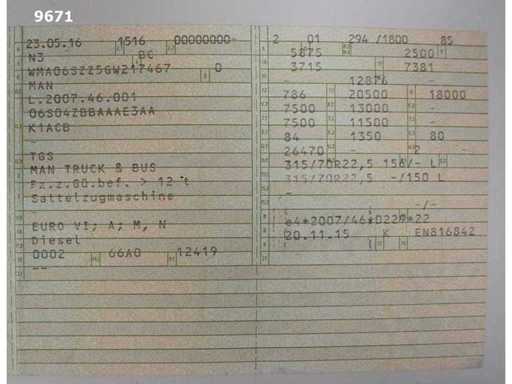 9671
23.05.16 1516 00000000-
N3 BC
WMA06SZZ5GW217467 0
MAN
L.2007.46.001
06S04ZBBAAAE3AA
K1ACB
-
TGS
MAN TRUCK & BUS
Fz.z.Gü.bef. > 12 t
Sattelzugmaschine
-
EURO VI; A; M, N
Diesel
0002 66A0 12419
--
2 01 294 /1800 85
5875 2500
3715 7381
- 12876 -
786 20500 18000
7500 13000 -
7500 11500 -
84 1350 80
26470 - 2 -
315/70R22,5 156/- L
315/70R22,5 -/150 L
-
-/-
e4*2007/46*0220*22
20.11.15 K EN816842